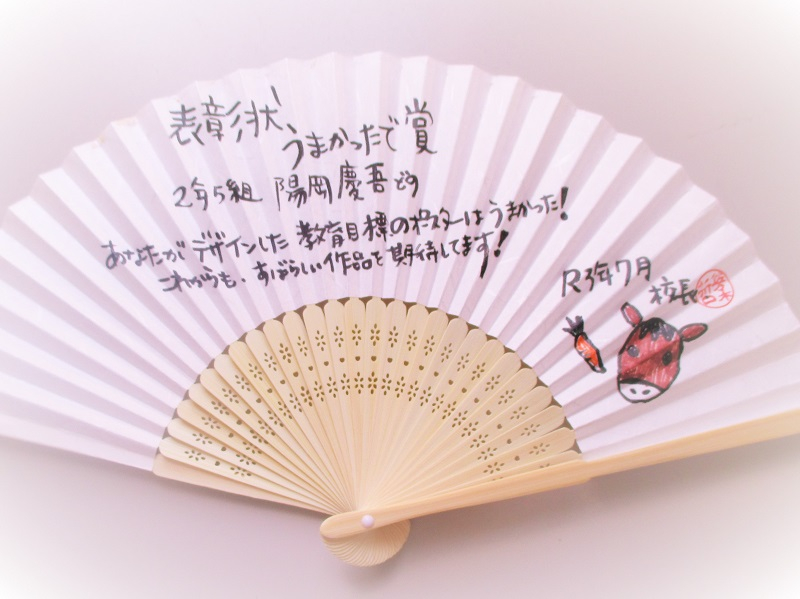 表彰状
うまかったで賞
2年5組 陽岡慶吾どす
あなたがデザインした教育目標のポスターはうまかった!
これからも、すばらしい作品を期待してます!
R3年7月
校長